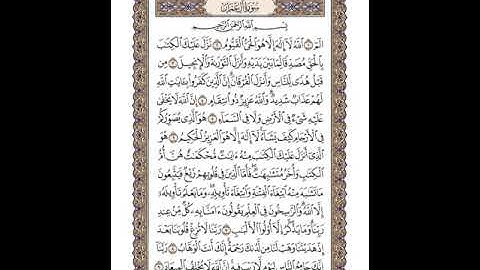 سُورَةُ آلِ عِمْرَانَ
بِسْمِ ٱللَّهِ ٱلرَّحْمَٰنِ ٱلرَّحِيمِ
الٓمٓ ١ ٱللَّهُ لَآ إِلَٰهَ إِلَّا هُوَ ٱلْحَىُّ ٱلْقَيُّومُ ٢ نَزَّلَ عَلَيْكَ ٱلْكِتَٰبَ
بِٱلْحَقِّ مُصَدِّقًا لِّمَا بَيْنَ يَدَيْهِ وَأَنزَلَ ٱلتَّوْرَىٰةَ وَٱلْإِنجِيلَ ٣ مِن
قَبْلُ هُدًى لِّلنَّاسِ وَأَنزَلَ ٱلْفُرْقَانَ إِنَّ ٱلَّذِينَ كَفَرُوا۟ بِـَٔايَٰتِ ٱللَّهِ
لَهُمْ عَذَابٌ شَدِيدٌ وَٱللَّهُ عَزِيزٌ ذُو ٱنتِقَامٍ ٤ إِنَّ ٱللَّهَ لَا يَخْفَىٰ
عَلَيْهِ شَىْءٌ فِى ٱلْأَرْضِ وَلَا فِى ٱلسَّمَآءِ ٥ هُوَ ٱلَّذِى يُصَوِّرُكُمْ
فِى ٱلْأَرْحَامِ كَيْفَ يَشَآءُ لَآ إِلَٰهَ إِلَّا هُوَ ٱلْعَزِيزُ ٱلْحَكِيمُ ٦ هُوَ
ٱلَّذِىٓ أَنزَلَ عَلَيْكَ ٱلْكِتَٰبَ مِنْهُ ءَايَٰتٌ مُّحْكَمَٰتٌ هُنَّ أُمُّ
ٱلْكِتَٰبِ وَأُخَرُ مُتَشَٰبِهَٰتٌ فَأَمَّا ٱلَّذِينَ فِى قُلُوبِهِمْ زَيْغٌ فَيَتَّبِعُونَ
مَا تَشَٰبَهَ مِنْهُ ٱبْتِغَآءَ ٱلْفِتْنَةِ وَٱبْتِغَآءَ تَأْوِيلِهِۦ وَمَا يَعْلَمُ تَأْوِيلَهُۥٓ
إِلَّا ٱللَّهُ وَٱلرَّٰسِخُونَ فِى ٱلْعِلْمِ يَقُولُونَ ءَامَنَّا بِهِۦ كُلٌّ مِّنْ عِندِ
رَبِّنَا وَمَا يَذَّكَّرُ إِلَّآ أُو۟لُوا۟ ٱلْأَلْبَٰبِ ٧ رَبَّنَا لَا تُزِغْ قُلُوبَنَا بَعْدَ
إِذْ هَدَيْتَنَا وَهَبْ لَنَا مِن لَّدُنكَ رَحْمَةً إِنَّكَ أَنتَ ٱلْوَهَّابُ ٨ رَبَّنَآ
إِنَّكَ جَامِعُ ٱلنَّاسِ لِيَوْمٍ لَّا رَيْبَ فِيهِ إِنَّ ٱللَّهَ لَا يُخْلِفُ ٱلْمِيعَادَ ٩